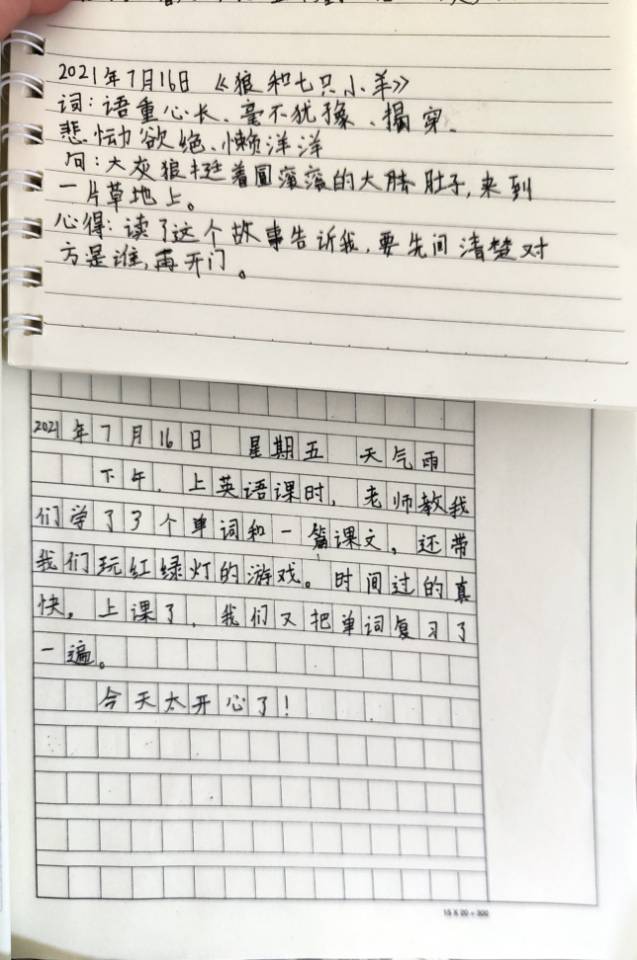 2021年7月16日 《狼和七只小羊》
词：语重心长、毫不犹豫、揭穿、
悲恸欲绝、懒洋洋
句：大灰狼挺着圆滚滚的大肚子，来到
一片草地上。
心得：读了这个故事告诉我，要先问清楚对
方是谁，再开门。
2021年7月16日 星期五 天气雨
下午，上英语课时，老师教我
们学了3个单词和一篇课文。还带
我们玩红绿灯的游戏。时间过的真
快，上课了，我们又把单词复习了
一遍。
今天太开心了！
15 X 20 = 300